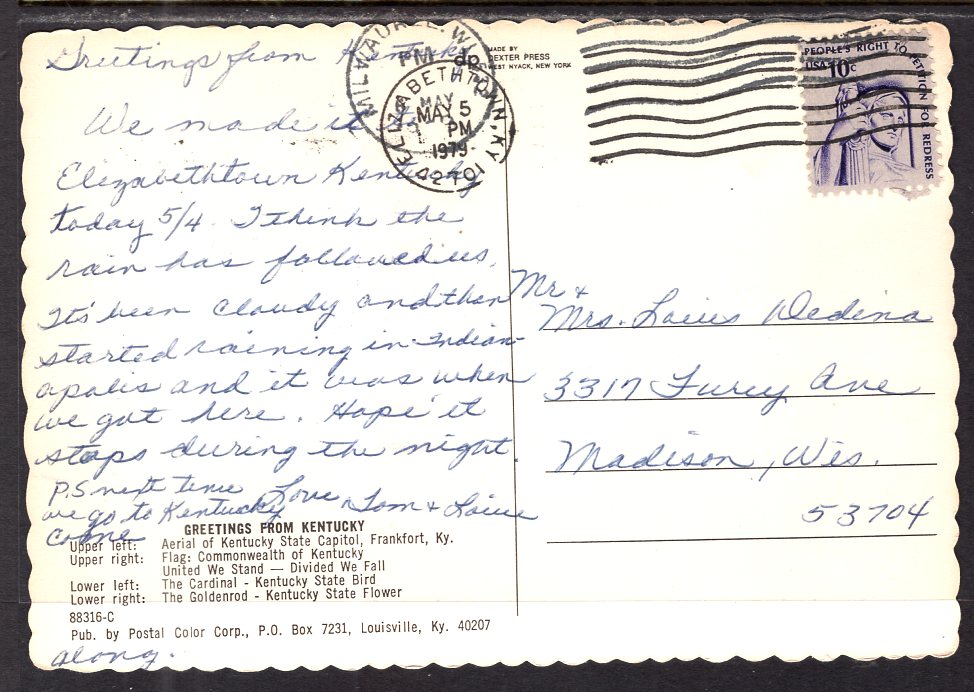 Greetings from Kentucky
We made it
Elizabethtown Kentucky
today 5/4. I think the
rain has followed us.
It's been cloudy and then
started raining in Indian-
apolis and it was when
we got here. Hope it
stops during the night.
Love
Tom &
P.S next time
we go to Kentucky
come
along.
GREETINGS FROM KENTUCKY
Upper left: Aerial of Kentucky State Capitol, Frankfort, Ky.
Upper right: Flag: Commonwealth of Kentucky
United We Stand — Divided We Fall
Lower left: The Cardinal - Kentucky State Bird
Lower right: The Goldenrod - Kentucky State Flower
88316-C
Pub. by Postal Color Corp., P.O. Box 7231, Louisville, Ky. 40207
MADE BY
DEXTER PRESS
WEST NYACK, NEW YORK
MILWAUKEE, WI
PM
MAY
ELIZABETHTOWN, KY
MAY 5
PM
1979
42701
PEOPLE'S RIGHT TO PETITION FOR REDRESS
USA 10c
Mr &
Mrs. Louis Dedina
3317 Furey Ave
Madison, Wis.
53704